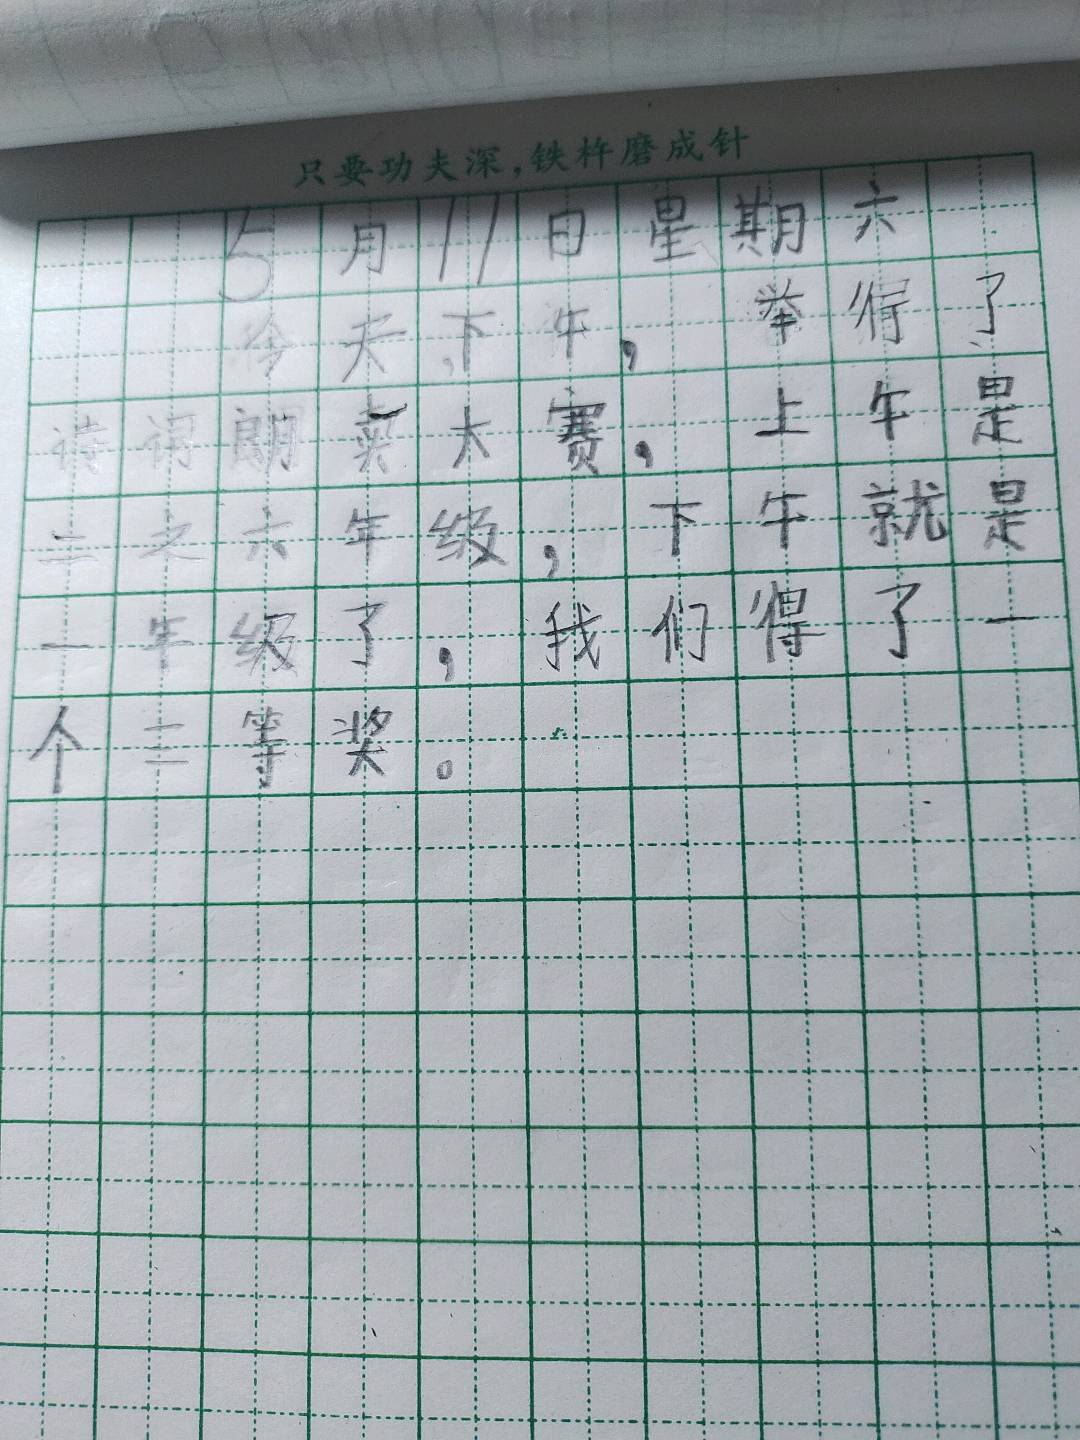 只要功夫深，铁杵磨成针
5月11日星期六
今天下午，举得了
诗词朗卖大赛，上午是
二之六年级，下午就是
一年级了，我们得了一
个三等奖。